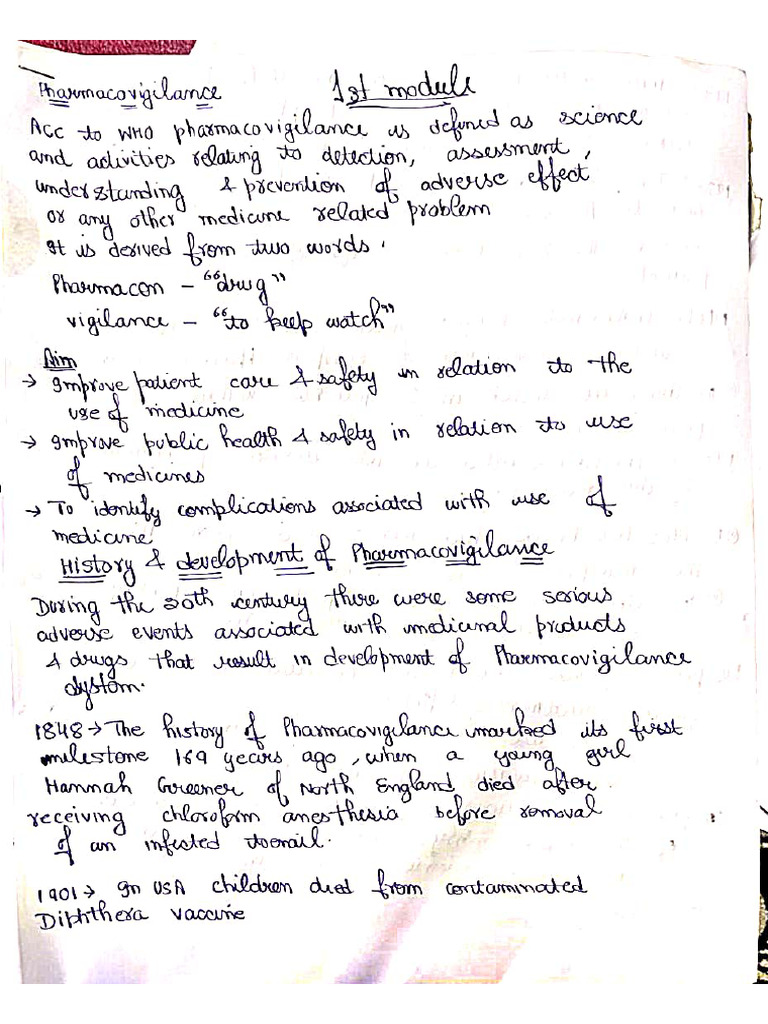 Pharmacovigilance 1st module
Acc to WHO pharmacovigilance is defined as science
and activities relating to detection, assessment,
understanding & prevention of adverse effect
or any other medicine related problem
It is derived from two words.
Pharmacon - "drug"
vigilance - "to keep watch"
Aim
→ Improve patient care & safety in relation to the
use of medicine
→ Improve public health & safety in relation to use
of medicines
→ To identify complications associated with use of
medicine
History & development of Pharmacovigilance
During the 20th century there were some serious
adverse events associated with medicinal products
& drugs that result in development of Pharmacovigilance
system.
1848 → The history of Pharmacovigilance marked its first
milestone 169 years ago, when a young girl
Hannah Greener of North England died after
receiving chloroform anesthesia before removal
of an infected toenail.
1901 → In USA children died from contaminated
Diphthera vaccine